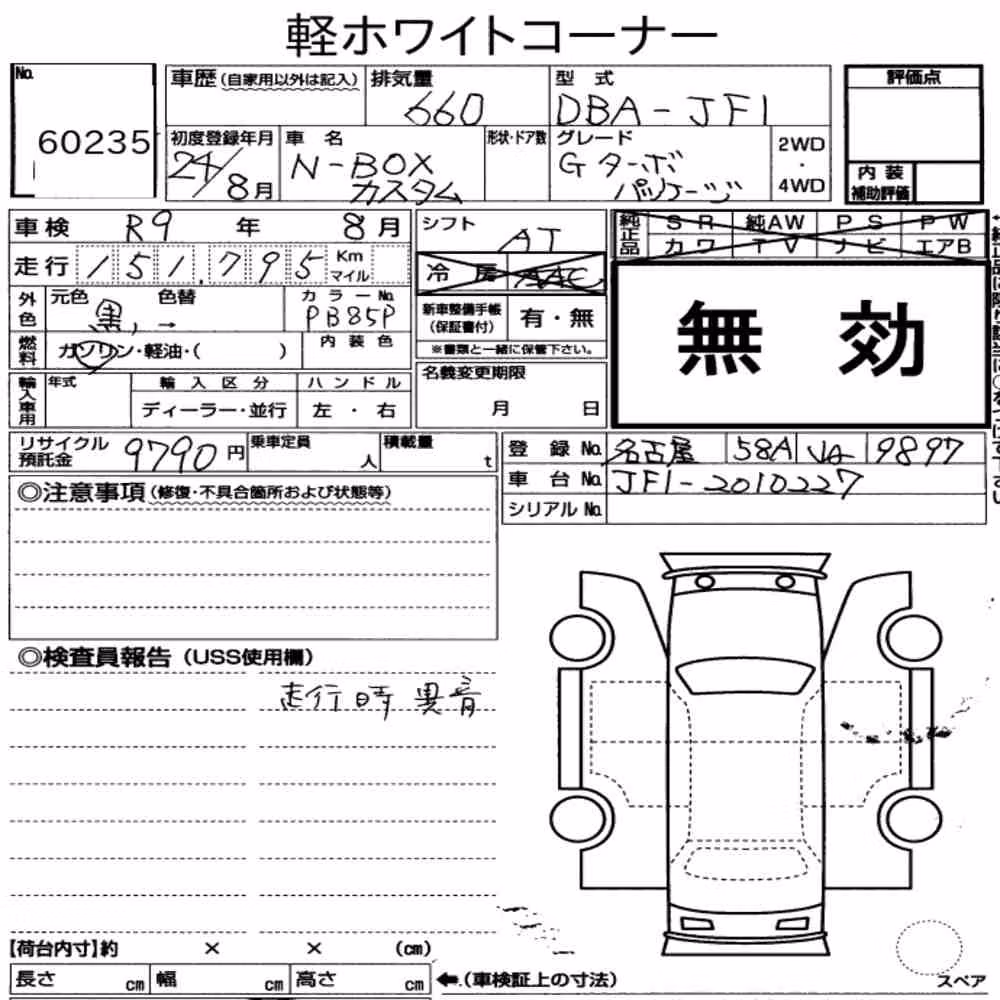 軽ホワイトコーナー
No.
60235
車歴(自家用以外は記入)
排気量
660
型式
DBA-JF1
評価点
初度登録年月
24/8月
車名
N-BOX
カスタム
形状・ドア数
グレード
Gターボ
パッケージ
2WD
・
4WD
内装
補助評価
車検 R9年 8月
シフト
AT
純正品
SR 純AW PS PW
カワ TV ナビ エアB
走行 151,795 Km
マイル
冷房 AAC
無効
外色
元色 色替
黒, →
カラーNo.
PB85P
新車整備手帳
(保証書付)
有・無
燃料
ガソリン・軽油・( )
内装色
※書類と一緒に保管下さい。
輸入車用
年式
輸入区分
ハンドル
ディーラー・並行
左・右
名義変更期限
月 日
リサイクル
預託金
9790円
乗車定員
人
積載量
t
登録No. 名古屋 58A 9897
車台No. JF1-2010227
シリアルNo.
◎注意事項(修復・不具合箇所および状態等)
◎検査員報告(USS使用欄)
走行時 異音
【荷台内寸】約 × × (cm)
長さ cm 幅 cm 高さ cm
←.(車検証上の寸法)
スペア